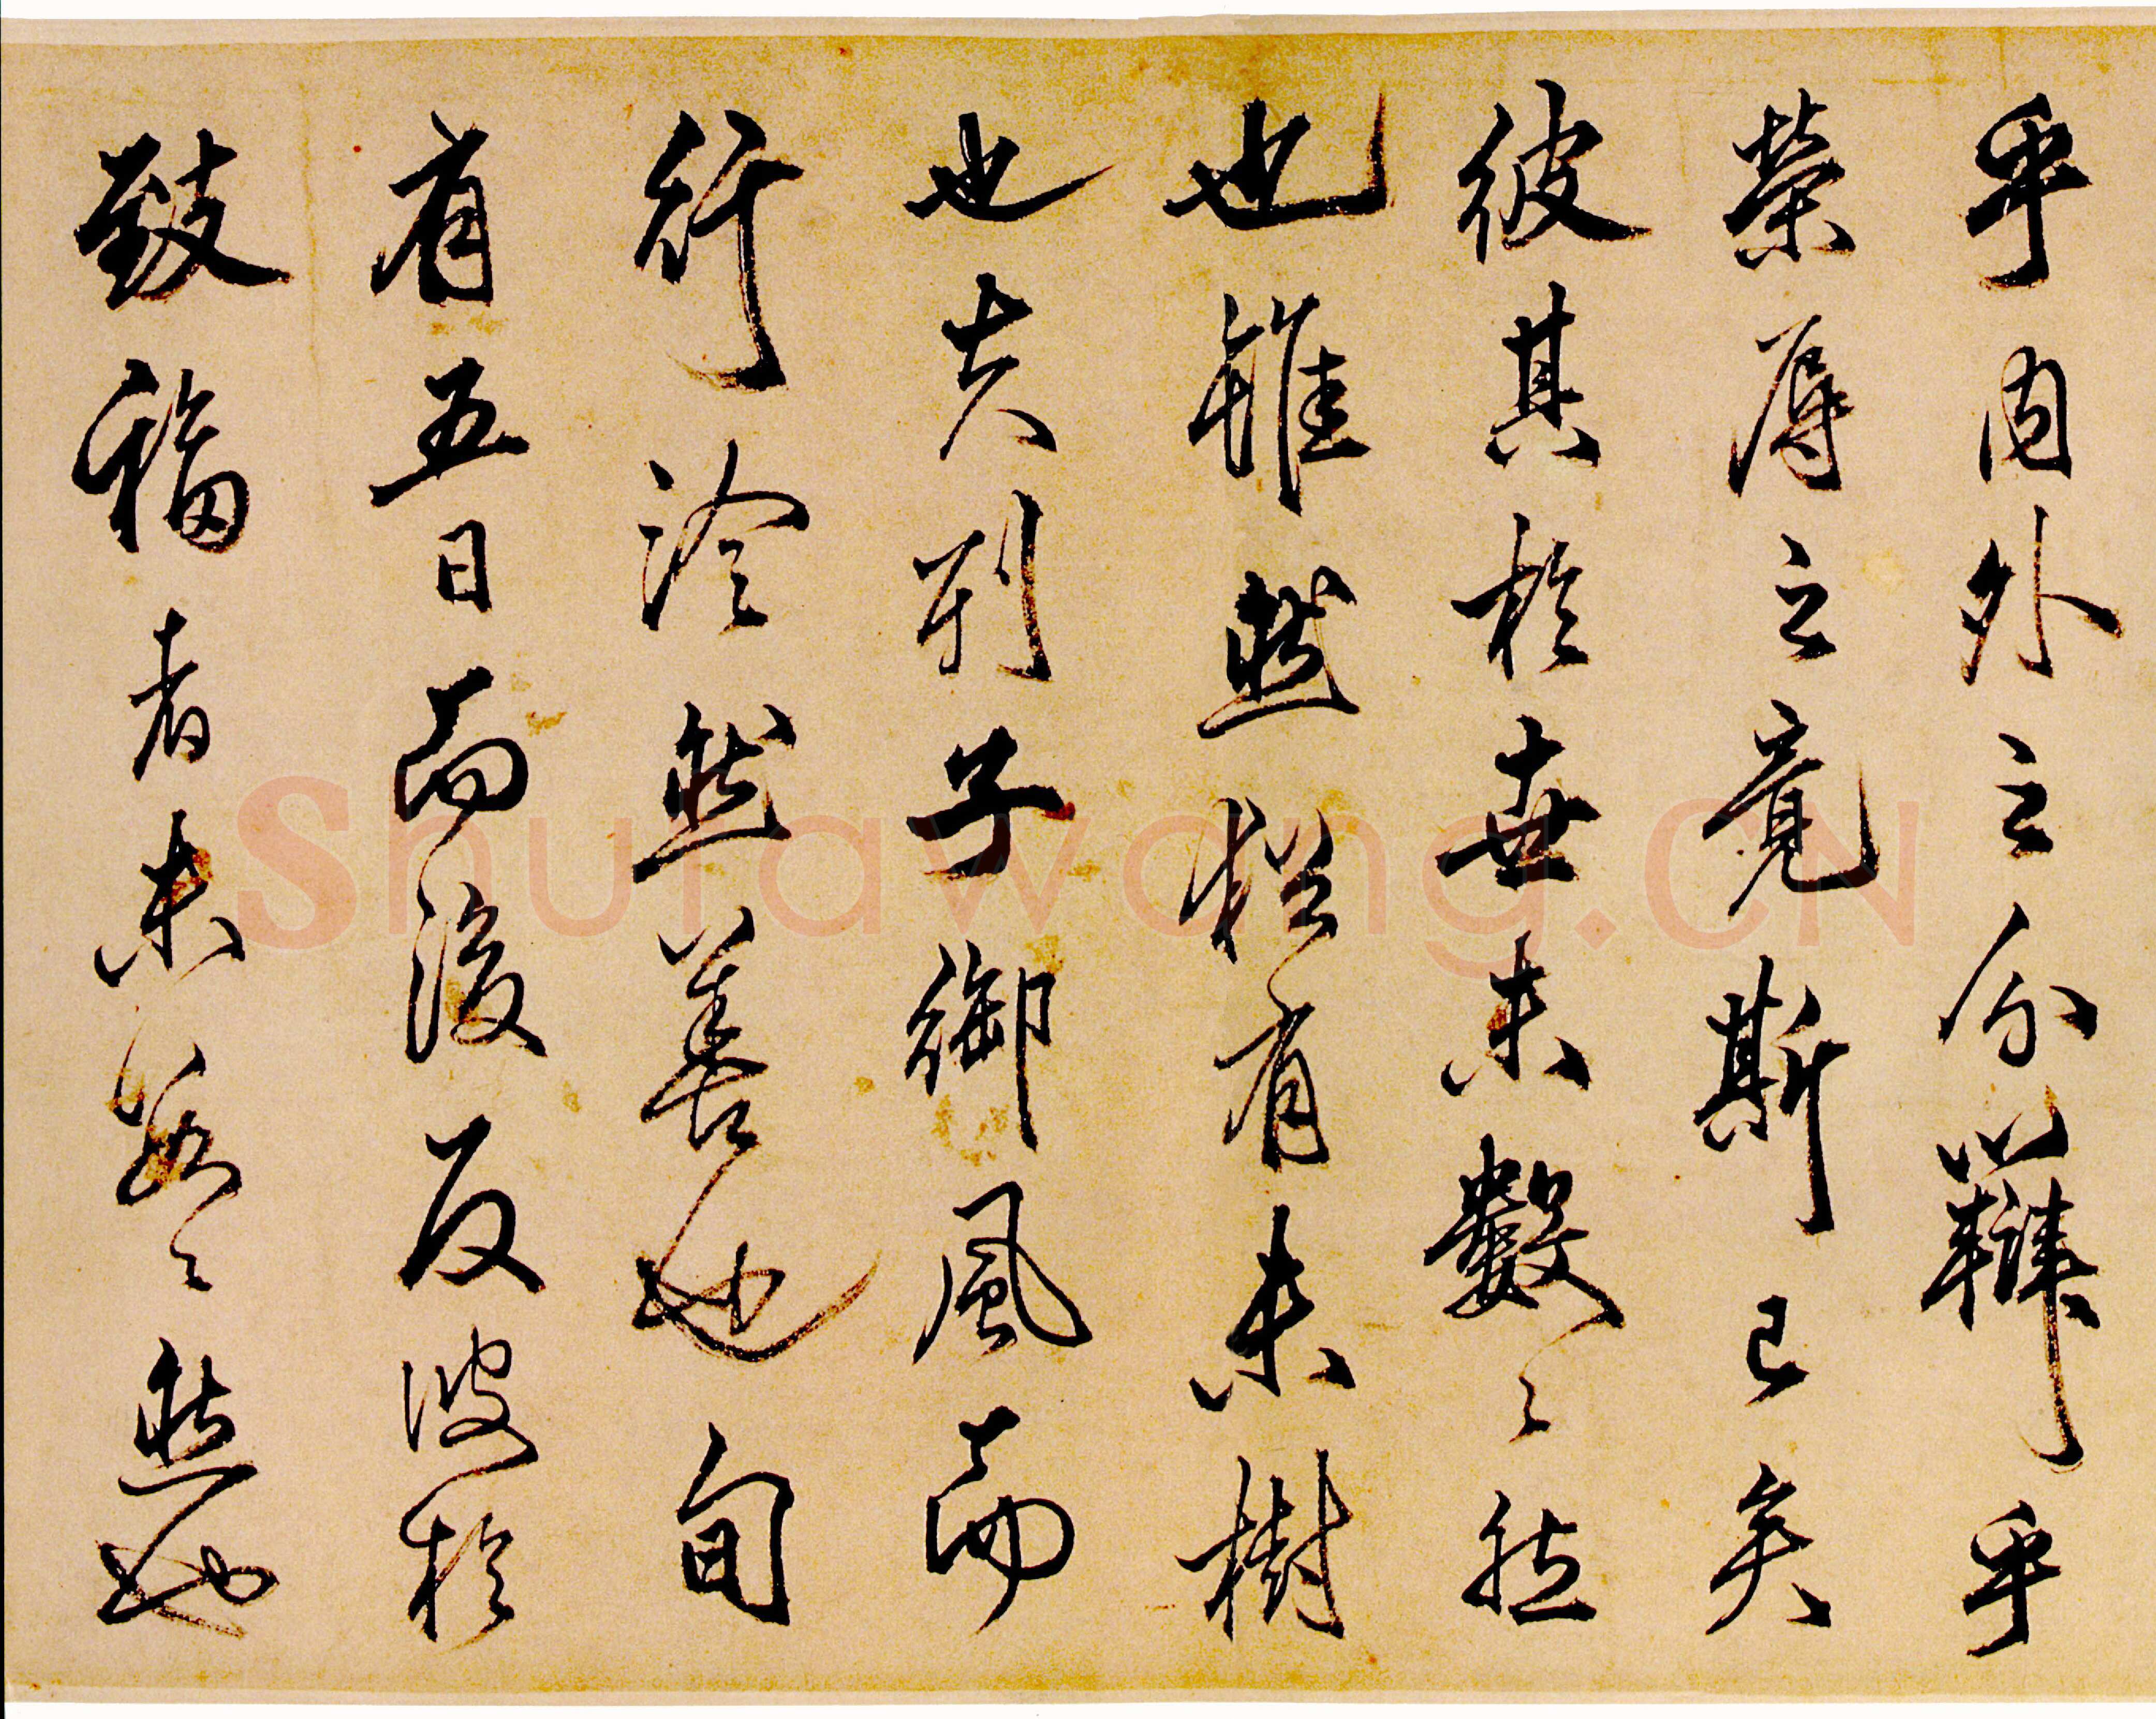 乎内外之分辯乎
榮辱之竟斯已矣
彼其於世未數〻然
也雖然猶有未樹
也夫列子御風而
行泠然善也旬
有五日而後反彼於
致福者未數〻然也
Shufawang.CN